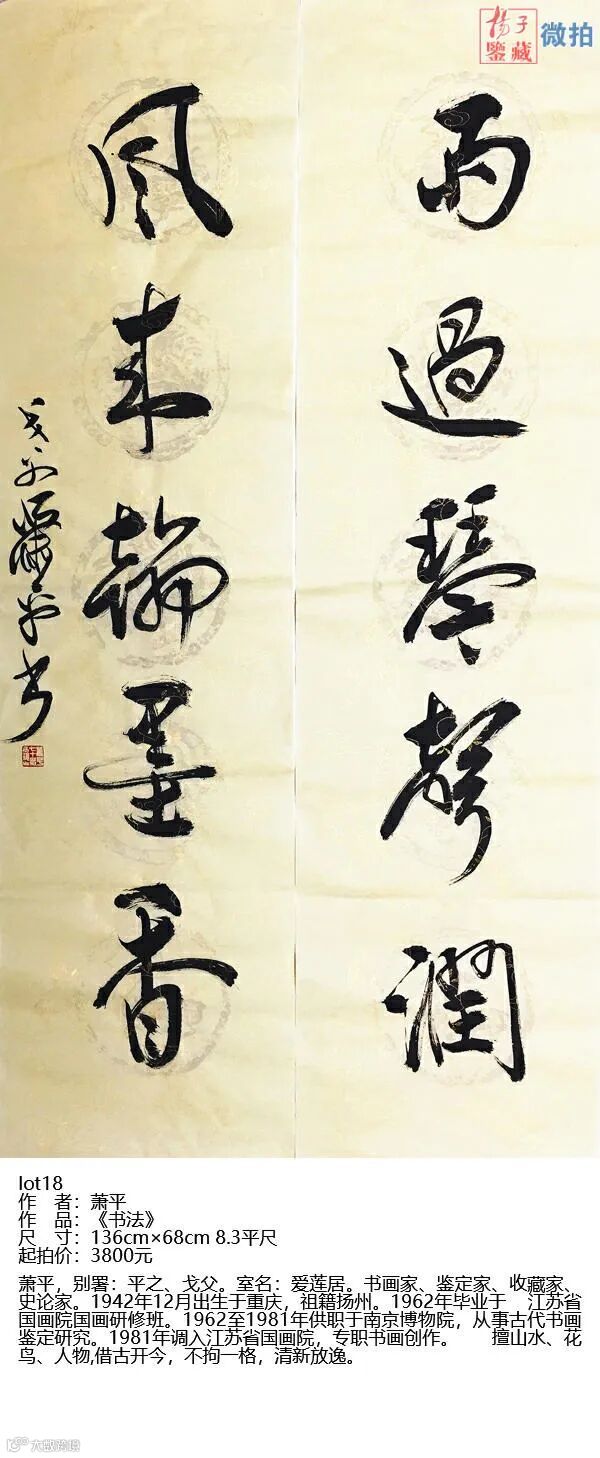 揚子
鑒藏
微拍
雨過琴聲潤
风来翰墨香
lot18
作 者：萧平
作 品：《书法》
尺 寸：136cm×68cm 8.3平尺
起拍价：3800元
萧平，别署：平之、戈父。室名：爱莲居。书画家、鉴定家、收藏家、
史论家。1942年12月出生于重庆，祖籍扬州。1962年毕业于 江苏省
国画院国画研修班。1962至1981年供职于南京博物院，从事古代书画
鉴定研究。1981年调入江苏省国画院，专职书画创作。 擅山水、花
鸟、人物,借古开今，不拘一格，清新放逸。
大数跨境